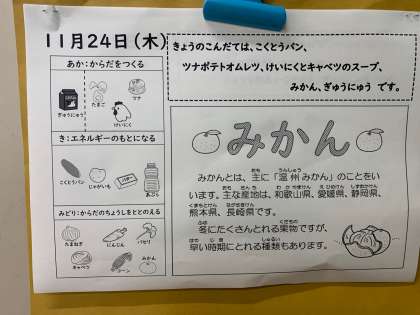 11月24日(木)
あか:からだをつくる
ぎゅうにゅう
たまご
ツナ
けいにく
き:エネルギーのもとになる
こくとうパン
じゃがいも
バター
あぶら
みどり:からだのちょうしをととのえる
たまねぎ
にんじん
パセリ
キャベツ
コーン
みかん
きょうのこんだては、こくとうパン、
ツナポテトオムレツ、けいにくとキャベツのスープ、
みかん、ぎゅうにゅう です。
みかん
みかんとは、主に「温州みかん」のことをい
います。主な産地は、和歌山県、愛媛県、静岡県、
熊本県、長崎県です。
冬にたくさんとれる果物ですが、
早い時期にとれる種類もあります。